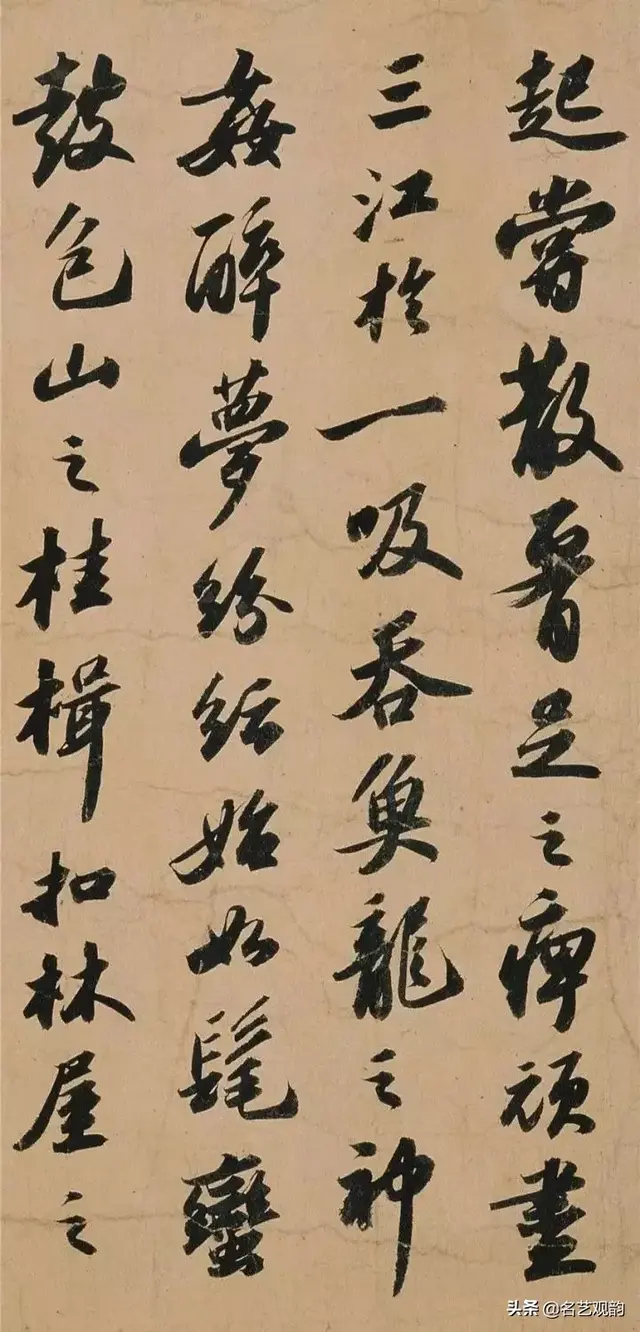 起嘗散腰足之痺頑盡
三江於一吸吞魚龍之神
姦醉夢紛紜始如髦蠻
鼓包山之桂楫扣林屋之
头条 @名艺观韵